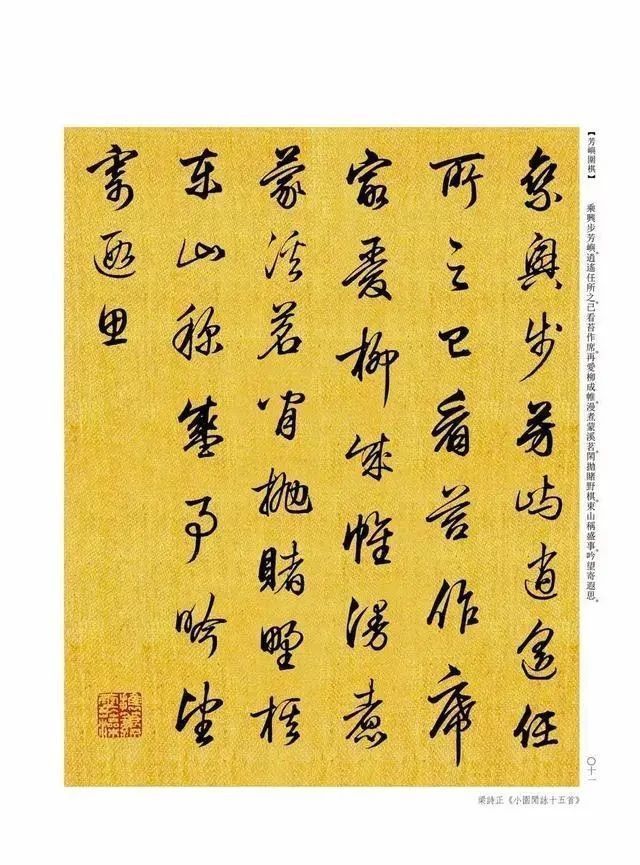 【芳嶼圍棋】
乘興步芳嶼。逍遙任所之。已看苔作席。再愛柳成帷。漫煮蒙溪茗。閑拋賭野棋。東山稱盛事。吟望寄遐思。
〇十一
乘興步芳嶼逍遙任
所之已看苔作席
最愛柳成帷漫煮
蒙溪茗閒拋賭野棋
東山稱盛事吟望
寄遐思
梁詩正《小園閒詠十五首》